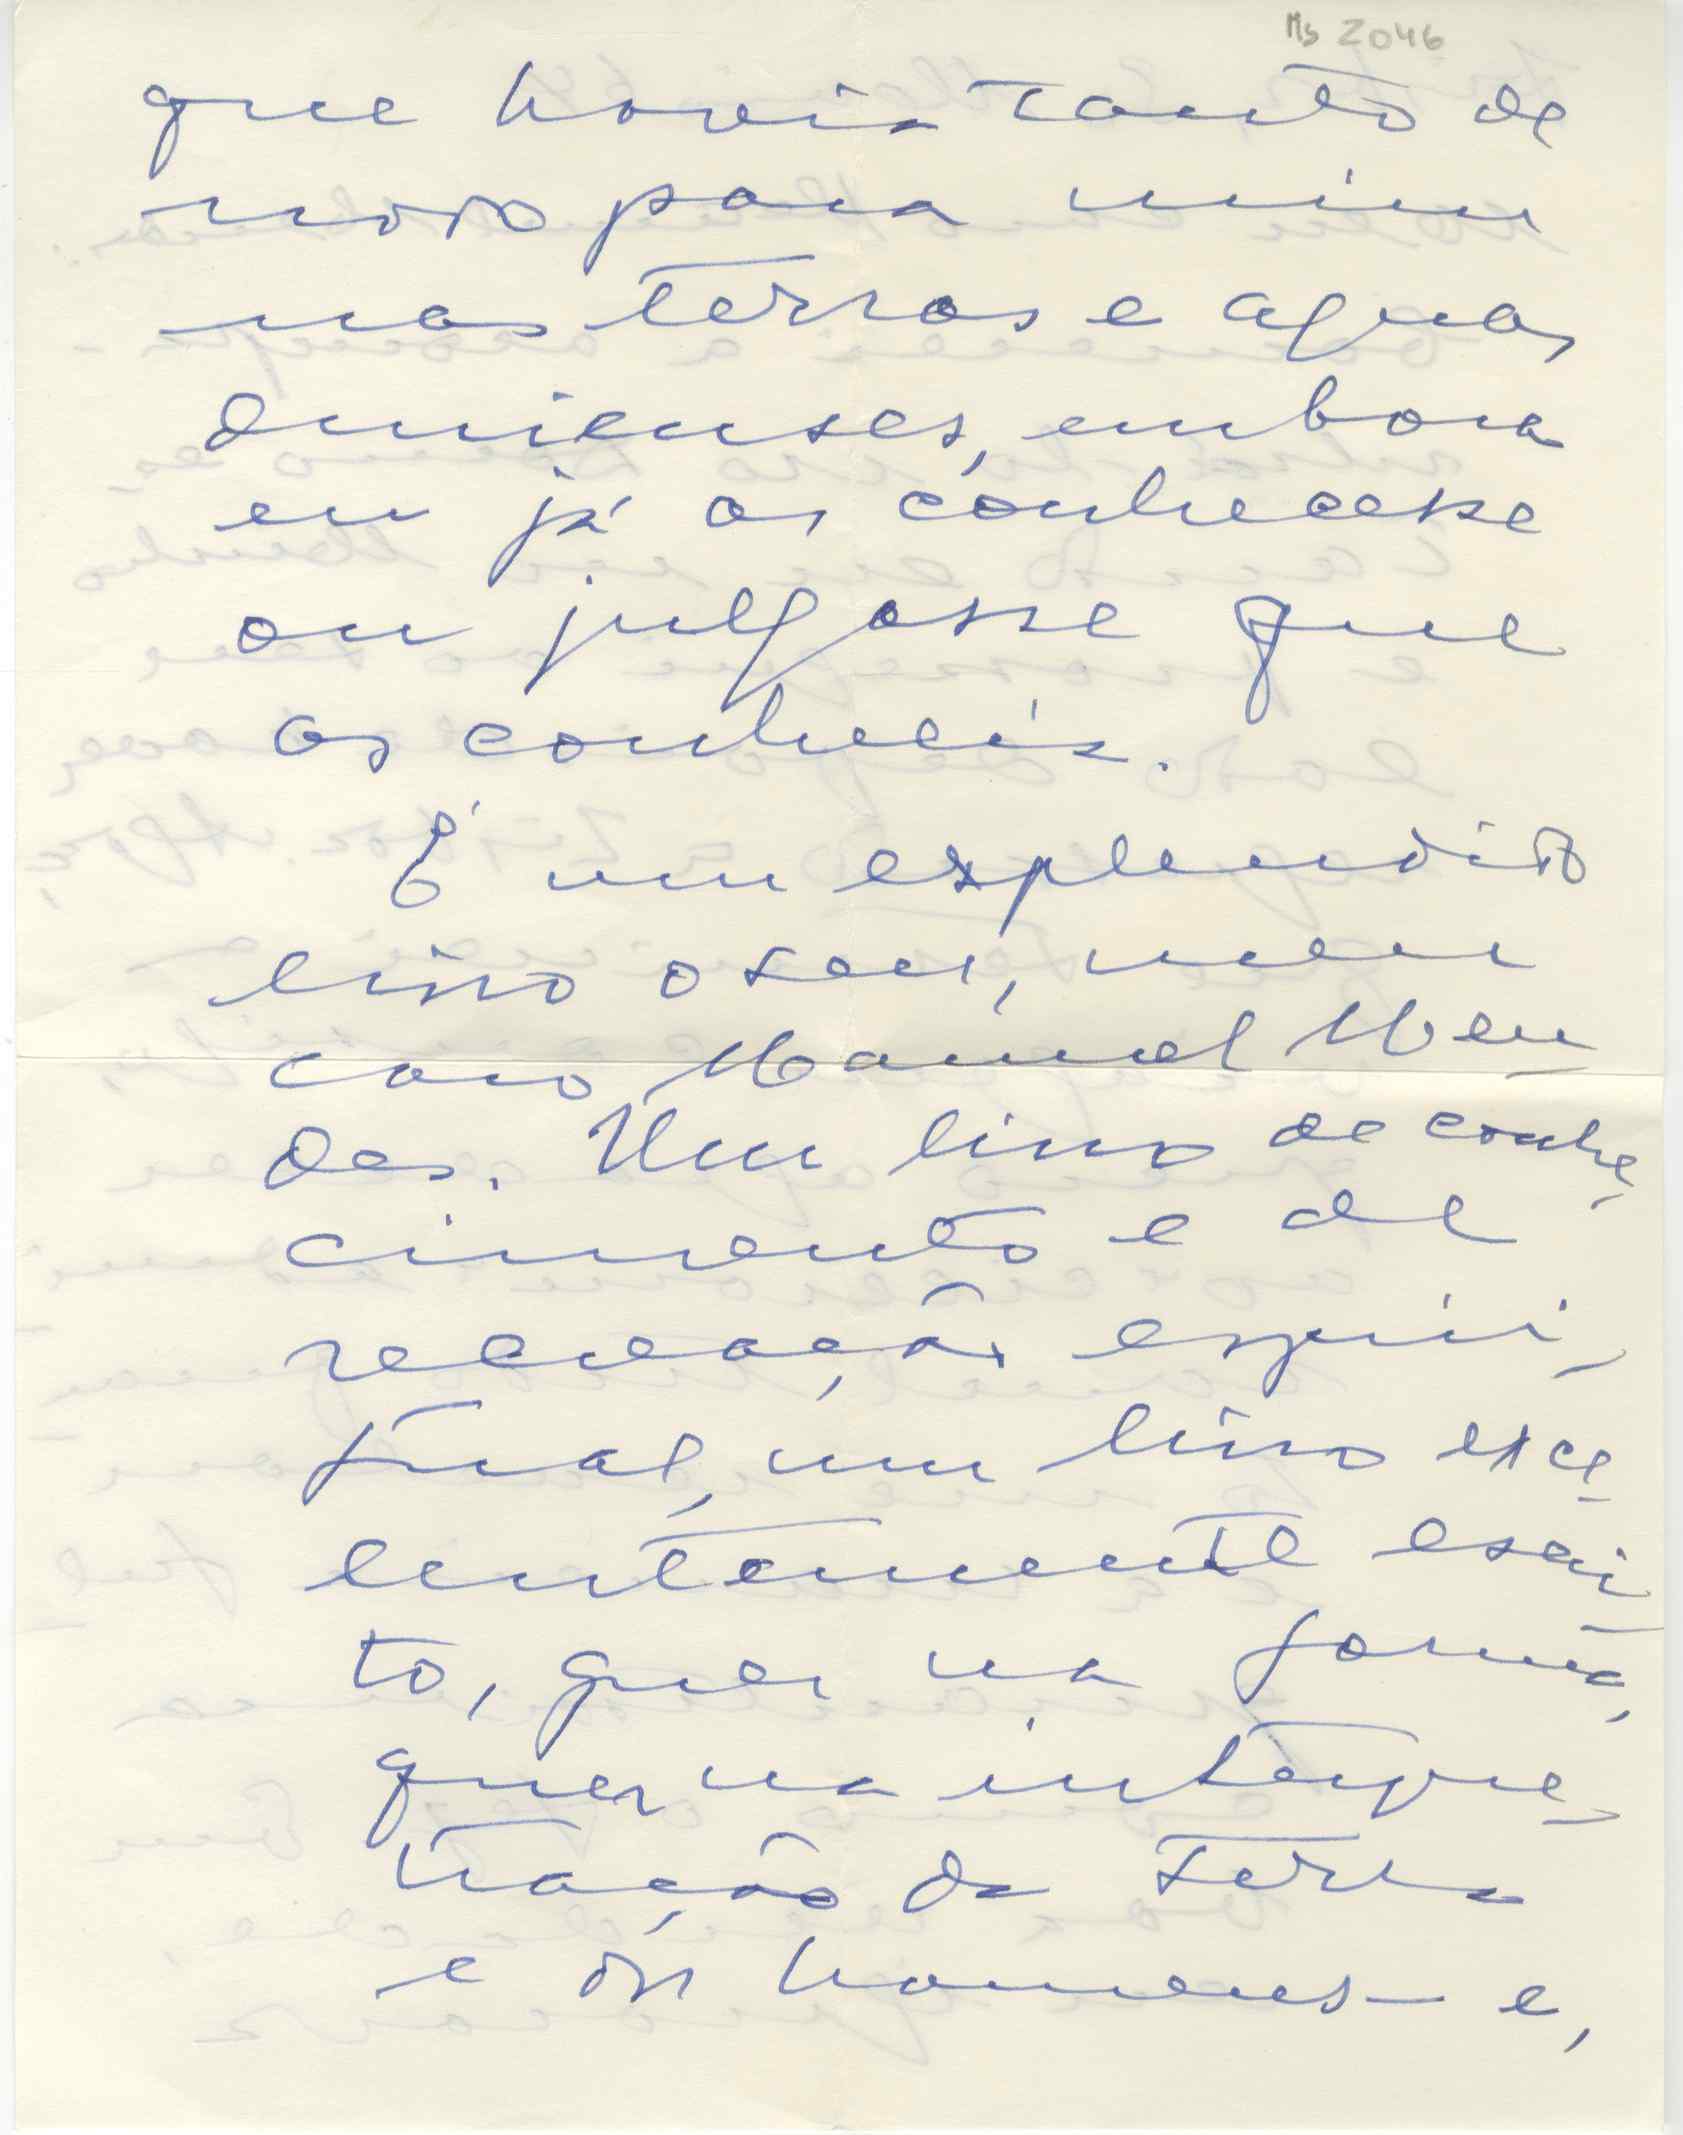 Ms 2046
que havia tanto de
novo para mim
nas terras e aguas
durienses, embora
eu já as conhecesse
ou julgasse que
as conhecia.
É um esplendido
livro o seu, meu
caro Manuel Men
des. Um livro de conhe
cimento e de
recreação espiri-
tual, um livro exce
lentemente escri
to, quer na forma,
quer na interpre-
tração da terra
e os homens – e,